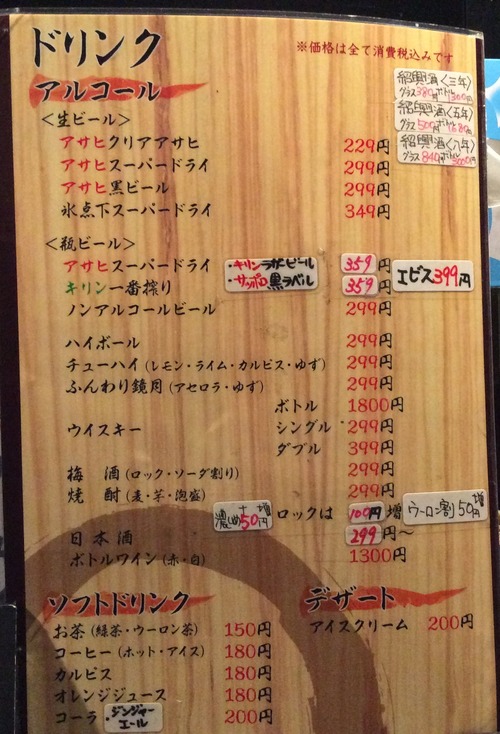 ドリンク
※価格は全て消費税込みです
アルコール
紹興酒〈三年〉
グラス380円 ボトル
紹興酒〈五年〉
グラス500円 ボトル
紹興酒〈八年〉
グラス840円 ボトル
＜生ビール＞
アサヒクリアアサヒ 229円
アサヒスーパードライ 299円
アサヒ黒ビール 299円
氷点下スーパードライ 349円
＜瓶ビール＞
アサヒスーパードライ ・キリンラガービール 359円 エビス399円
キリン一番搾り ・サッポロ黒ラベル 359円
ノンアルコールビール 299円
ハイボール 299円
チューハイ（レモン・ライム・カルピス・ゆず） 299円
ふんわり鏡月（アセロラ・ゆず） 299円
ボトル 1800円
ウイスキー シングル 299円
ダブル 399円
梅酒（ロック・ソーダ割り） 299円
焼酎（麦・芋・泡盛） 299円
濃いめ+50円増 ロックは 100円増 ウーロン割50円増
日本酒 299円〜
ボトルワイン（赤・白） 1300円
ソフトドリンク
お茶（緑茶・ウーロン茶） 150円
コーヒー（ホット・アイス） 180円
カルピス 180円
オレンジジュース 180円
コーラ・ジンジャーエール 200円
デザート
アイスクリーム 200円